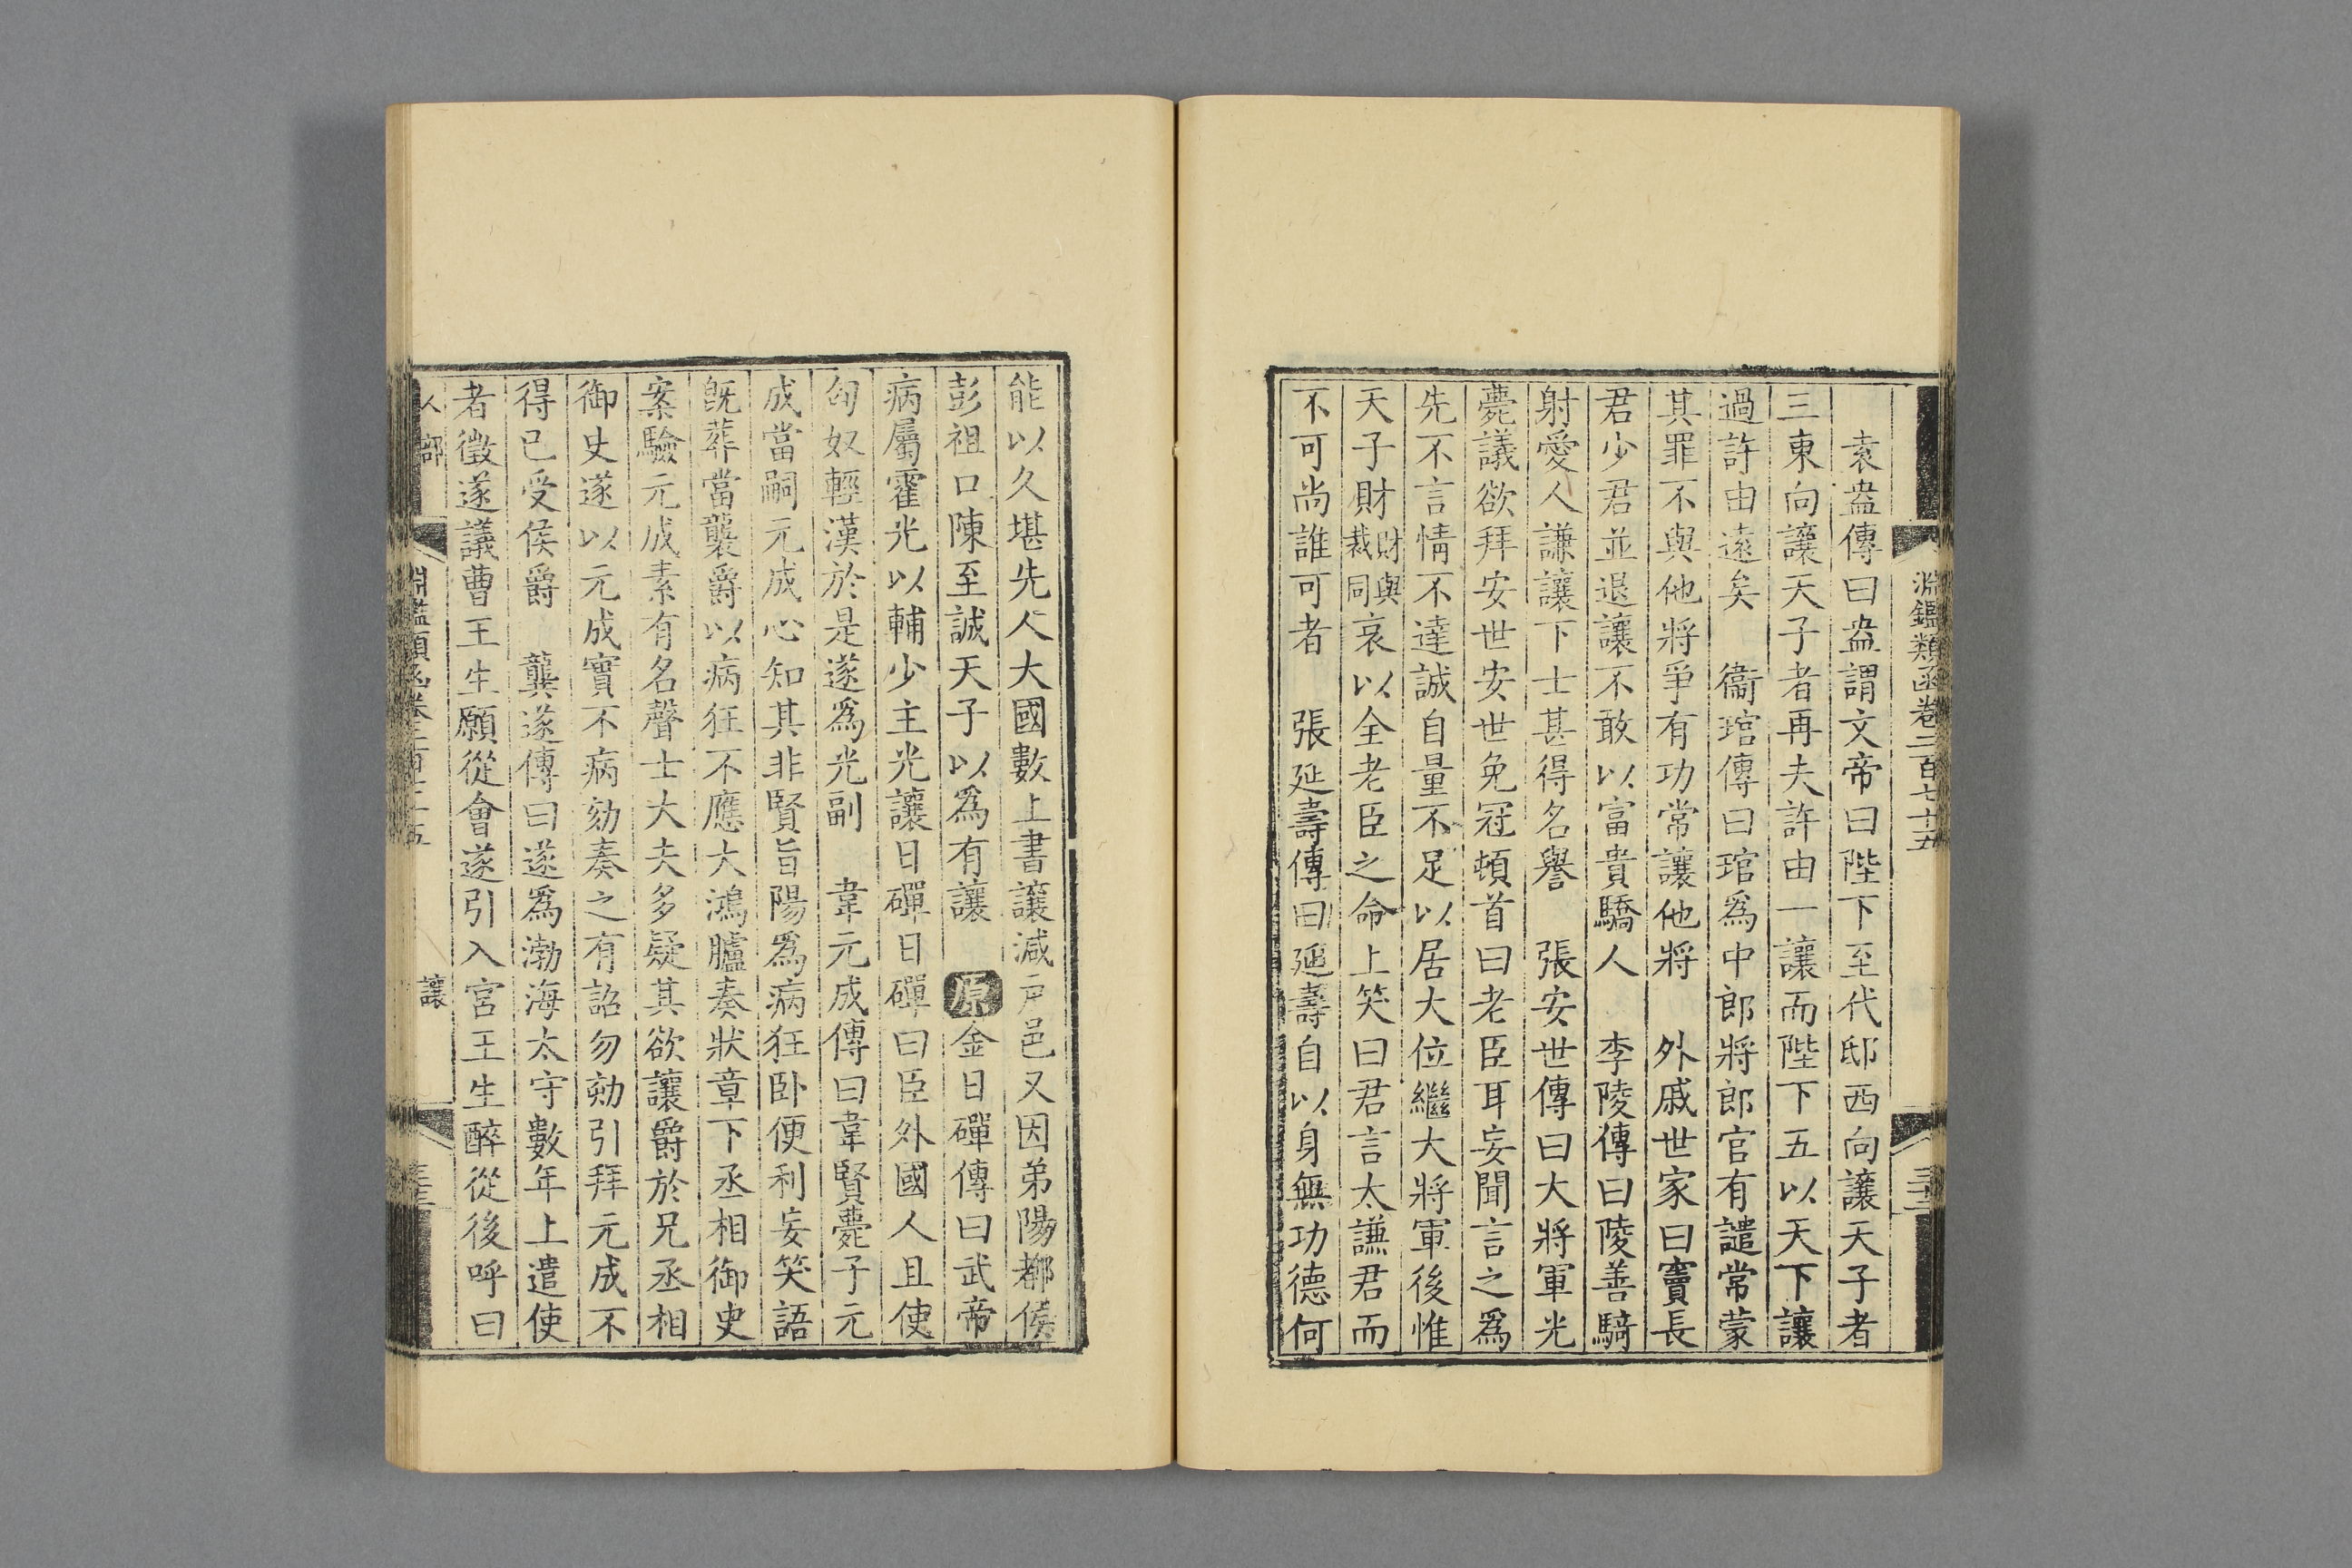 淵鑑類函卷二百七十五
袁盎傳曰盎謂文帝曰陛下至代邸西向讓天子者
三東向讓天子者再夫許由一讓而陛下五以天下讓
過許由遠矣　衞琯傳曰琯爲中郎將郎官有譴常蒙
其罪不與他將爭有功常讓他將　外戚世家曰竇長
君少君並退讓不敢以富貴驕人　李陵傳曰陵善騎
射愛人謙讓下士甚得名譽　張安世傳曰大將軍光
薨議欲拜安世安世免冠頓首曰老臣耳妄聞言之爲
先不言情不達誠自量不足以居大位繼大將軍後惟
天子財財與裁同哀以全老臣之命上笑曰君言太謙君而
不可尚誰可者　張延壽傳曰延壽自以身無功德何
能以久堪先人大國數上書讓減戸邑又因弟陽都侯
彭祖口陳至誠天子以爲有讓　原金日磾傳曰武帝
病屬霍光以輔少主光讓日磾日磾曰臣外國人且使
匈奴輕漢於是遂爲光副　韋元成傳曰韋賢薨子元
成當嗣元成心知其非賢旨陽爲病狂卧便利妄笑語
旣葬當襲爵以病狂不應大鴻臚奏狀章下丞相御史
案驗元成素有名聲士大夫多疑其欲讓爵於兄丞相
御史遂以元成實不病劾奏之有詔勿劾引拜元成不
得已受侯爵　龔遂傳曰遂爲渤海太守數年上遣使
者徵遂議曹王生願從會遂引入宮王生醉從後呼曰
人部
讓